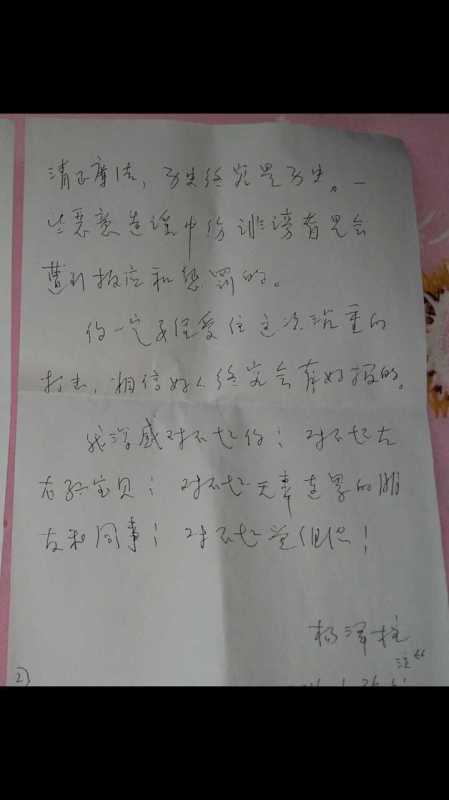 清正廉洁，历史终究是历史。一
些恶意造谣中伤诽谤者是会
遭到报应和惩罚的。
你一定要经受住这次沉重的
打击，相信好人终究会有好报的。
我深感对不起你；对不起
宝贝；对不起无辜连累的朋
友和同事；对不起党组织！
杨泽柱
注
2)